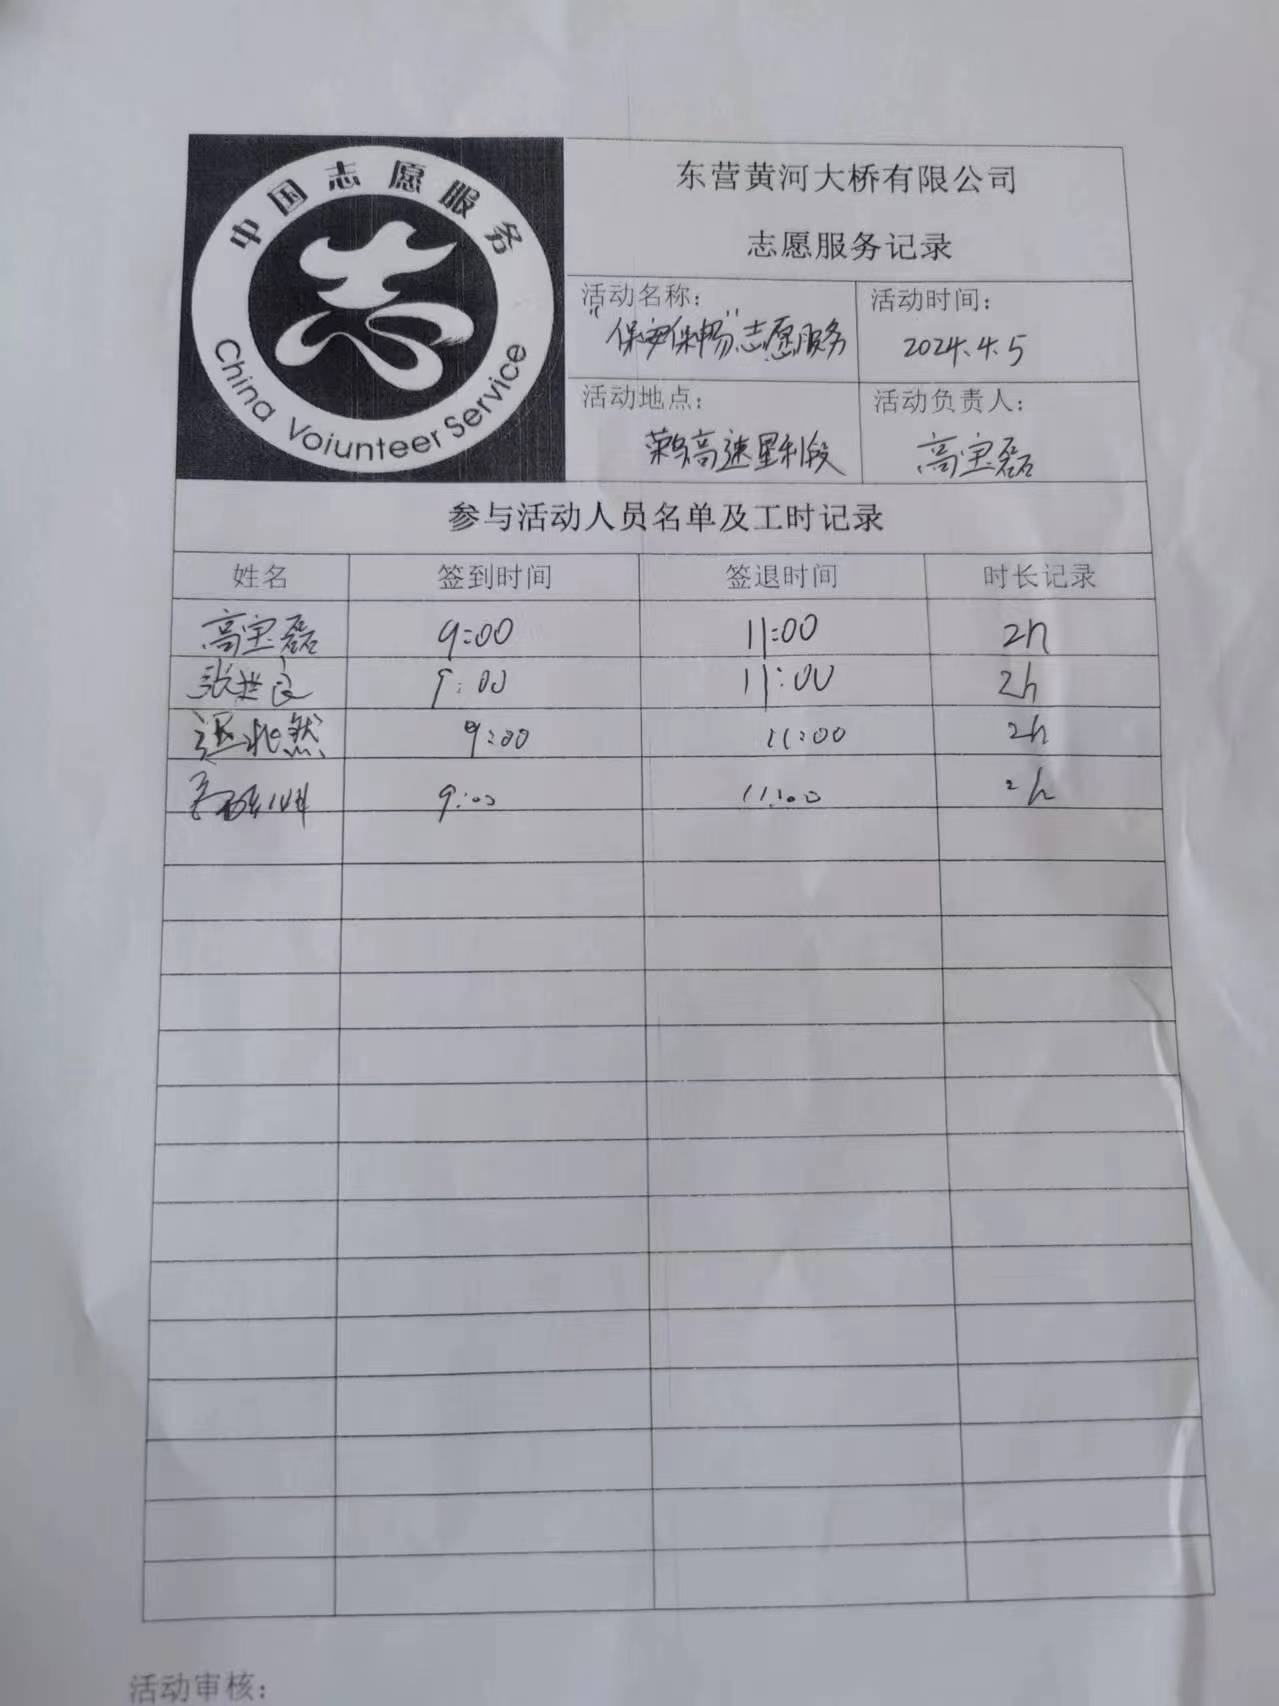 中国志愿服务
China Voiunteer Service
东营黄河大桥有限公司
志愿服务记录
活动名称：
“保安保畅”志愿服务
活动时间：
2024.4.5
活动地点：
荣乌高速垦利段
活动负责人：
高宝磊
参与活动人员名单及工时记录
姓名 签到时间 签退时间 时长记录
高宝磊 9:00 11:00 2h
张 良 9:00 11:00 2h
然 9:00 11:00 2h
9:00 11:00 2h
活动审核：